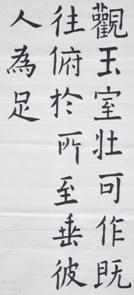 觀玉室壮可作既
往俯於所至垂彼
人為足